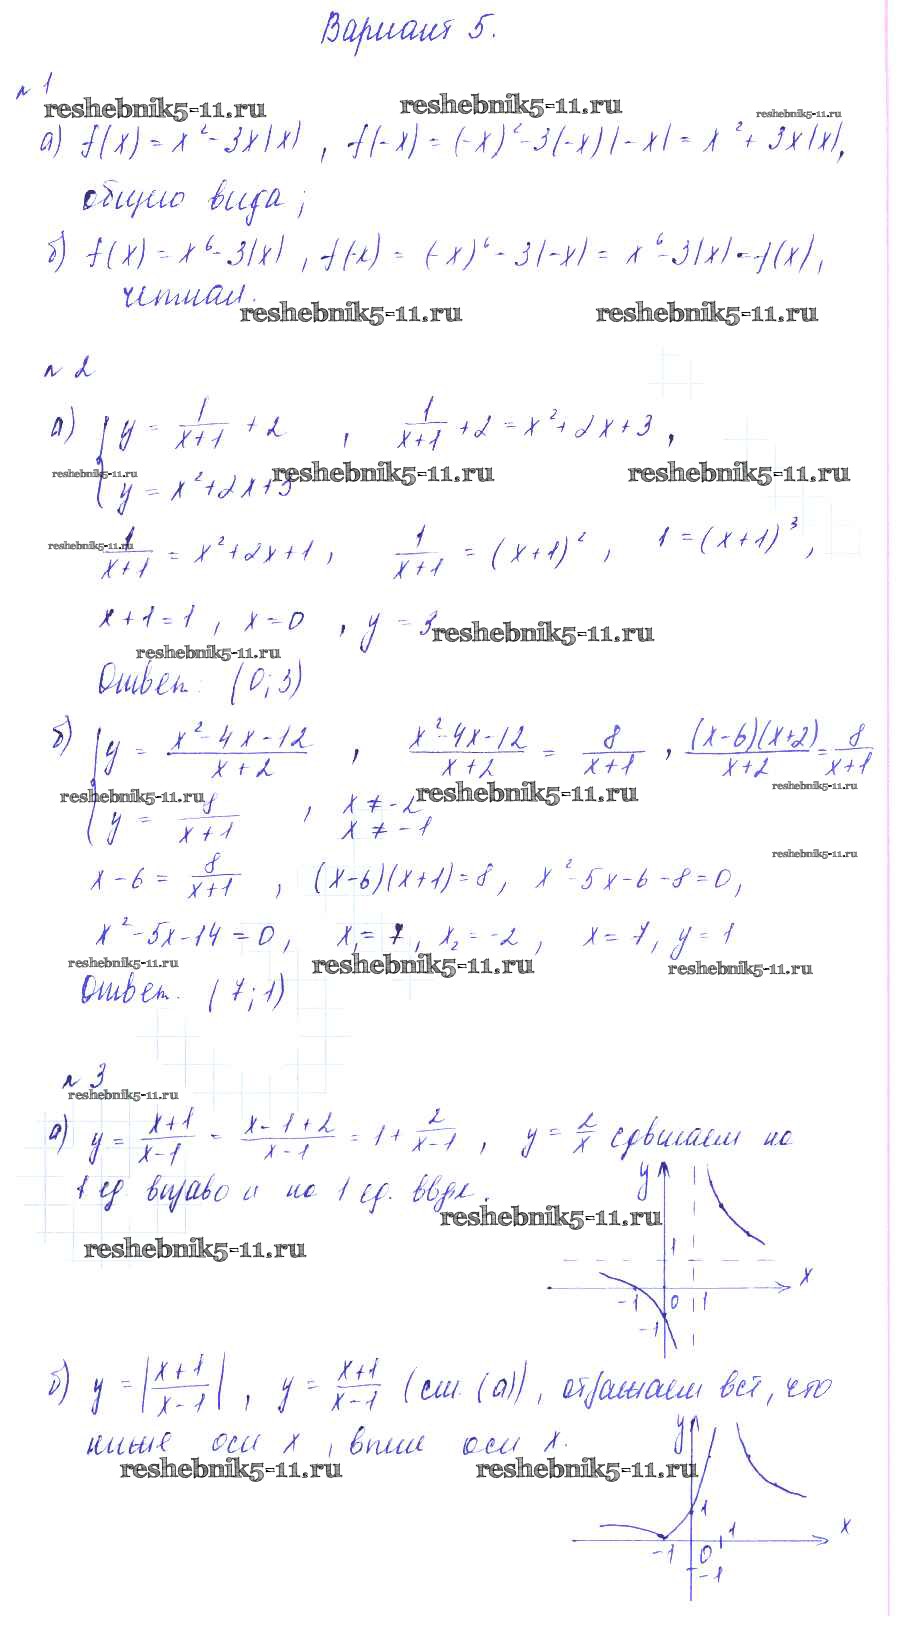 Вариант 5.
№ 1
reshebnik5-11.ru reshebnik5-11.ru reshebnik5-11.ru
а) f(x) = x² - 3x|x| , f(-x) = (-x)² - 3(-x)|-x| = x² + 3x|x|,
общего вида;
б) f(x) = x⁶ - 3|x| , f(-x) = (-x)⁶ - 3|-x| = x⁶ - 3|x| = f(x),
четная.
reshebnik5-11.ru reshebnik5-11.ru
№ 2
а) { y = 1/(x+1) + 2 , 1/(x+1) + 2 = x² + 2x + 3 ,
reshebnik5-11.ru reshebnik5-11.ru reshebnik5-11.ru
y = x² + 2x + 3
reshebnik5-11.ru
1/(x+1) = x² + 2x + 1 , 1/(x+1) = (x+1)² , 1 = (x+1)³ ,
x + 1 = 1 , x = 0 , y = 3
reshebnik5-11.ru
reshebnik5-11.ru
Ответ: (0; 3)
б) { y = (x² - 4x - 12)/(x + 2) , (x² - 4x - 12)/(x + 2) = 8/(x+1) , (x-6)(x+2)/(x+2) = 8/(x+1)
reshebnik5-11.ru reshebnik5-11.ru reshebnik5-11.ru
y = 8/(x+1) , x ≠ -2
x ≠ -1
reshebnik5-11.ru
x - 6 = 8/(x+1) , (x-6)(x+1) = 8 , x² - 5x - 6 - 8 = 0 ,
x² - 5x - 14 = 0 , x₁ = 7 , x₂ = -2 , x = 7 , y = 1
reshebnik5-11.ru reshebnik5-11.ru reshebnik5-11.ru
Ответ. (7; 1)
№ 3
reshebnik5-11.ru
а) y = (x+1)/(x-1) = (x-1+2)/(x-1) = 1 + 2/(x-1) , y = 2/x сдвигаем на
1 ед вправо и на 1 ед. вверх.
y
reshebnik5-11.ru
reshebnik5-11.ru
1
x
-1 0 1
-1
б) y = |(x+1)/(x-1)| , y = (x+1)/(x-1) (см. (а)) , отражаем всё, что
ниже оси x , выше оси x.
y
reshebnik5-11.ru reshebnik5-11.ru
1
x
-1 0 1
-1